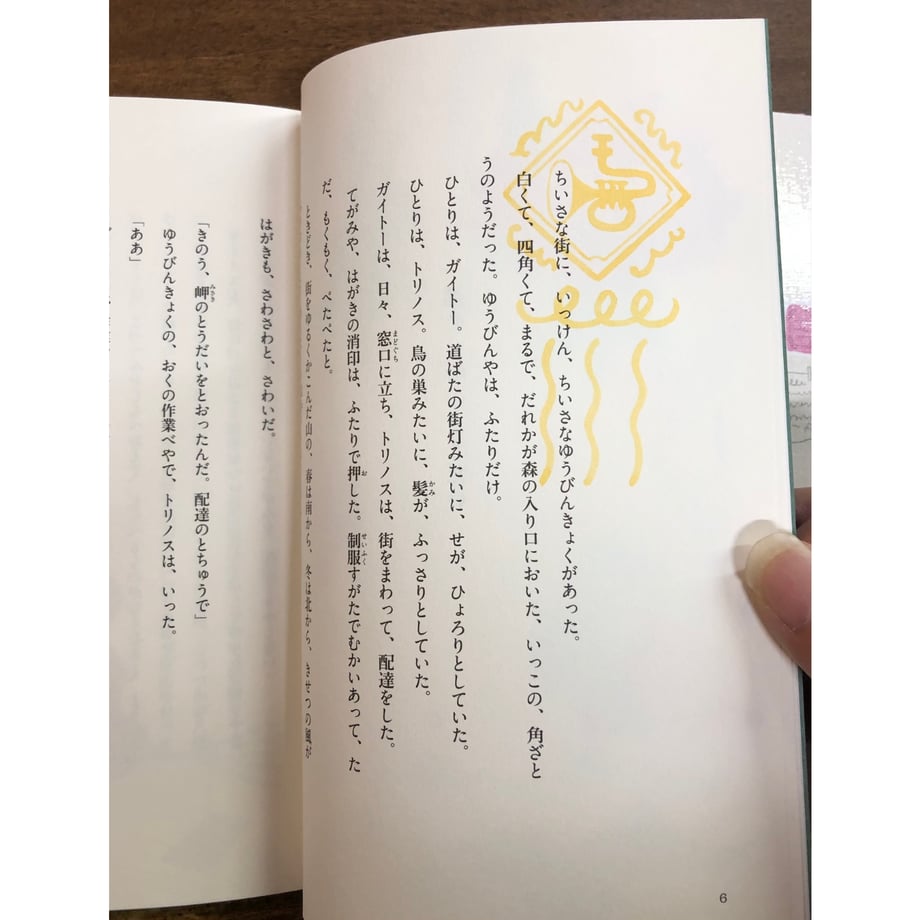 ちいさな街に、いっけん、ちいさなゆうびんきょくがあった。
白くて、四角くて、まるで、だれかが森の入り口においた、いっこの、角ざと
うのようだった。ゆうびんやは、ふたりだけ。
ひとりは、ガイトー。道ばたの街灯みたいに、せが、ひょろりとしていた。
ひとりは、トリノス。鳥の巣みたいに、髪が、ふっさりとしていた。
ガイトーは、日々、窓口に立ち、トリノスは、街をまわって、配達をした。
てがみや、はがきの消印は、ふたりで押した。制服すがたでむかいあって、た
だ、もくもく、ぺたぺたと。
ときどき、街をゆるくかこんだ山の、春は南から、冬は北から、きせつの風が
はがきも、さわさわと、さわいだ。
「きのう、岬のとうだいをとおったんだ。配達のとちゅうで」
ゆうびんきょくの、おくの作業べやで、トリノスは、いった。
「ああ」
6